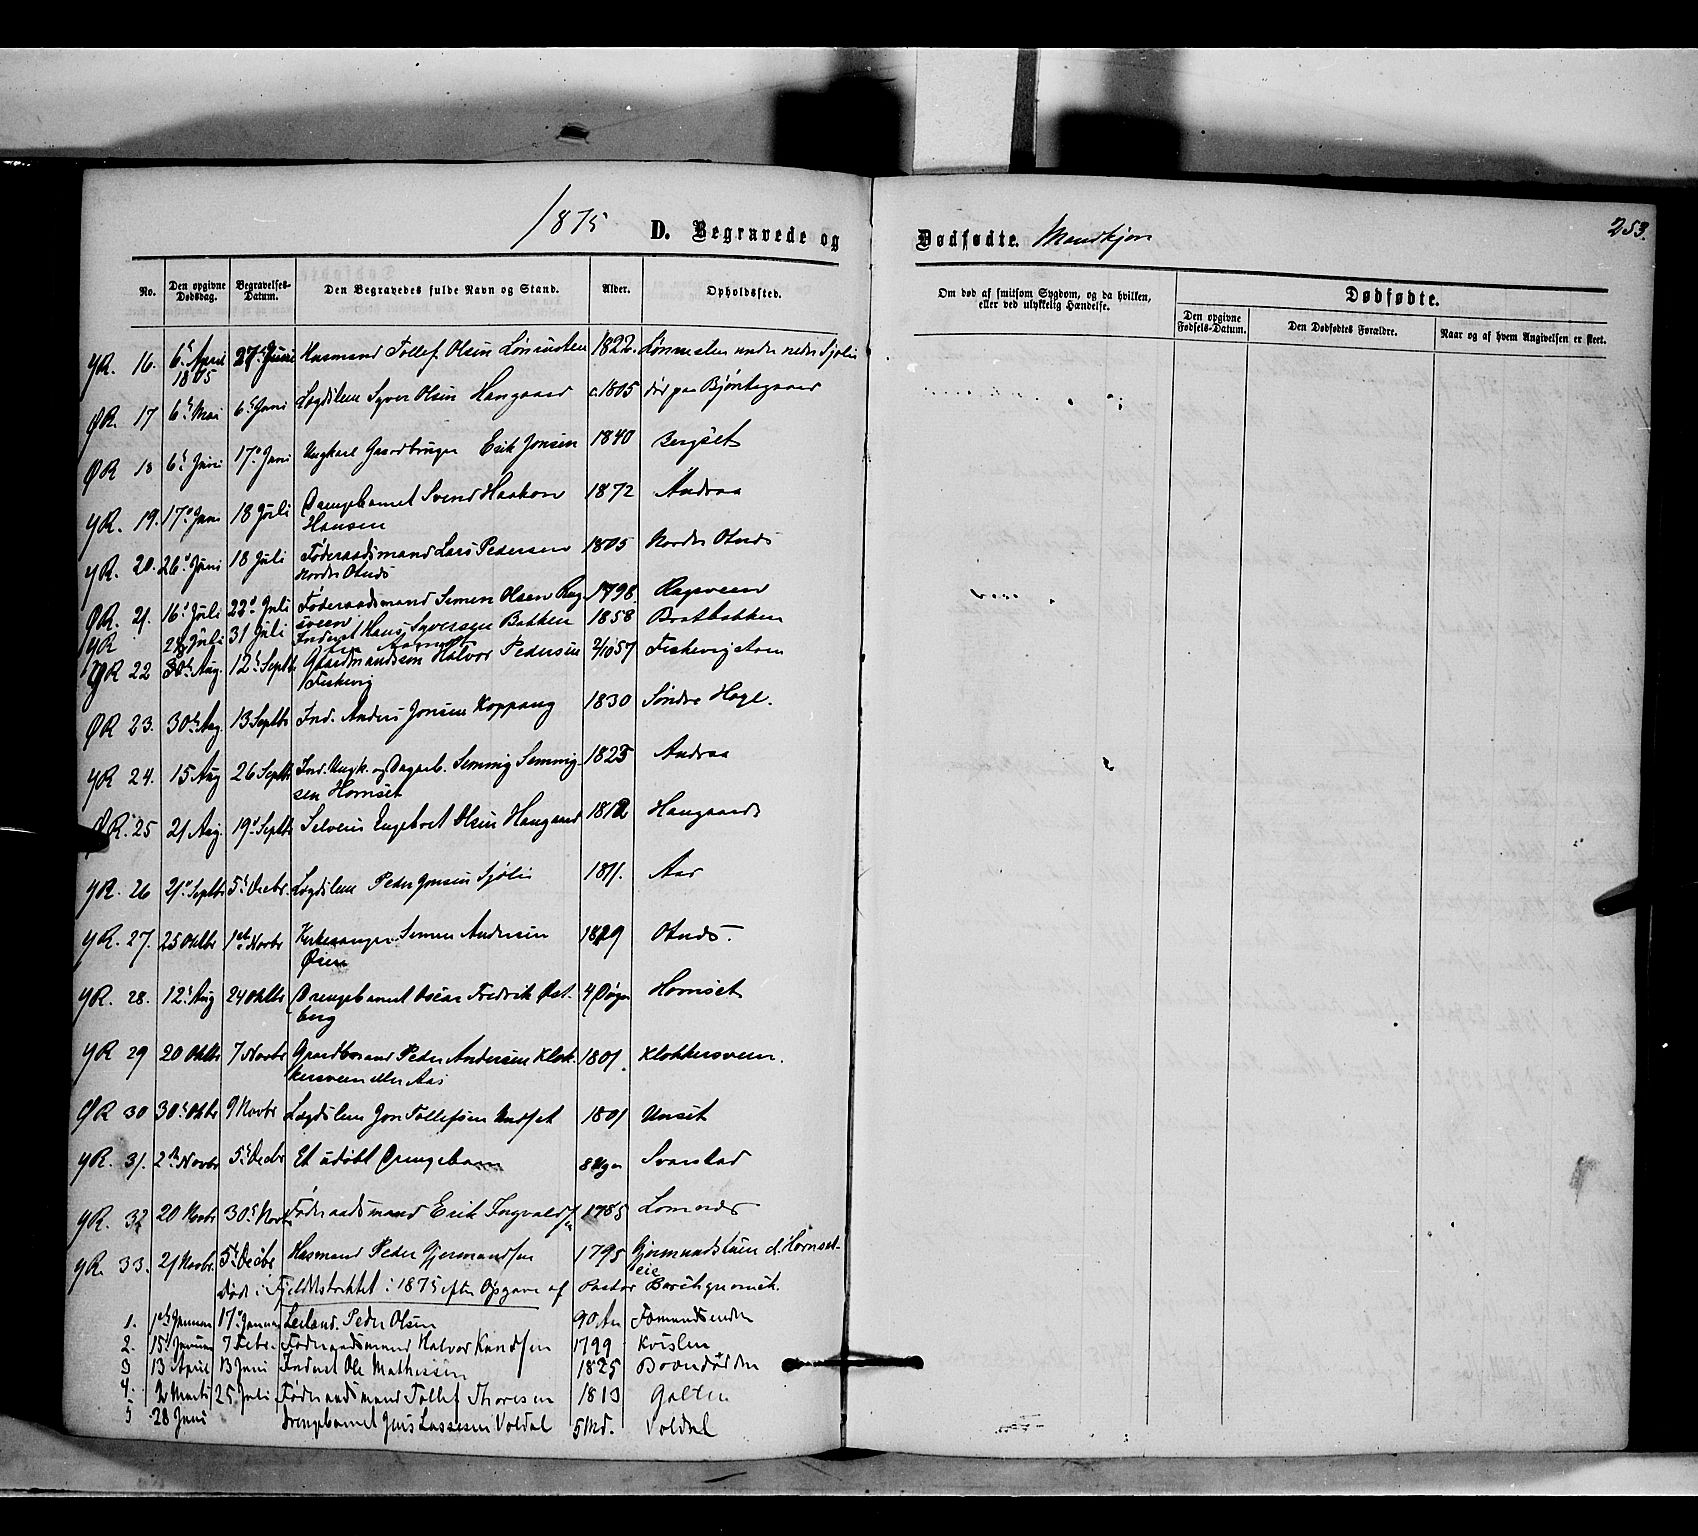 1875 D. Begravede og Dødfødte. Mandkjøn 253.
No. Den opgivne Dødsdag. Begravelses-Datum. Den Begravedes fulde Navn og Stand. Alder. Opholdssted. Om død af smitsom Sygdom, og da hvilken, eller ved ulykkelig Hændelse. Dødfødte.
Den opgivne Fødsels-Datum. Den Dødfødtes Forældre. Naar og af hvem Angivelsen er skeet.
YR. 16. 6te April 27de Juni Husmand Tollef Olsen 1822.
1805
ØR. 17 6te Mai 6te Juni Lægdslem Syver Olsen Haugaard c.1805 død paa Bjøntegaard
ØR 18 6te Juni 17de Juni Ungkarl Gaardbruger Erik Jonsen 1840 Bergset
YR. 19. 17de Juni 18 Juli Drengebarnet Svend Haakon 1872 Andraa
Hansen
YR. 20. 26de Juni 18 Juli Føderaadsmand Lars Pedersen 1805 Nordre Otnes
Nordre Otnes
ØR. 21. 16de Juli 22de Juli Føderaadsmand Simen Olsen Rug- 1798. Rugsveen
sveen
YR 28 Juli 31 Juli Inderst Hans Syversen Bakken 1858 Bratbakken
ØR 22 30te Aug. 12te Septbr Gaardmandssøn Halvor Pedersen 2/10 57 Fiskevigstrøm
Fiskevig
ØR 23. 30te Aug. 13 Septbr Ind. Anders Jonsen Koppang 1830 Søndre Hage.
YR 24. 15 Aug 26 Septbr Ind. Ungk. og Dagarb. Semmig Semmig- 1825 Andraa
sen Hornset
ØR. 25 21 Aug. 19de Septbr Selveier Engebret Olsen Haugaard 1812 Haugaard
YR. 26 21de Septbr 5te Decbr. Lægdslem Peder Jonsen Sjølie 1811. Aas
YR. 27. 25 Oktbr 1ste Novbr Kirkesanger Simen Andersen 1829 Otnes.
Øien
YR. 28. 12te Aug 24 Oktbr Drengebarnet Oscar Fredrik Øst- 4 Døgn Hornset
berg
YR 29 20 Oktbr 7 Novbr Gaardbrand Peder Andersen Klok- 1801. Klokkersveen.
kersveen eller Aas
ØR 30 30te Oktbr 9 Novbr Lægdslem Jon Tollefsen Undset 1801 Unset
YR. 31. 2den Novbr 5te Decbr Et udøbt Drengebarn 8 Uger Svarstad
YR. 32 20 Novbr 30te Novbr Føderaadsmand Erik Ingvaldsen 1785 Lomnes
YR. 33. 21 Novbr. 5te Decbr Husmand Peder Gjermundsen 1795 Gjermundstuen u. Hornset-
eie
Døde i Fjelddistriktet i 1875 efter Opgave af Pastor
1. 1ste Januar 17de Januar Leiland. Peder Olsen 90 Aar Fæmundsenden
2. 15de Januar 7 Febr. Føderaadsmand Halvor Knudsen 1799 Kvislen
3 13 April 13 Juni Inderst Ole Mathissen 1825
4. 2 Marts 25 Juli Føderaadsmand Tollef Thoresen 1813 Galten
5 28 Juni Drengebarnet Jens Lassesen Voldal 5 Md. Voldal